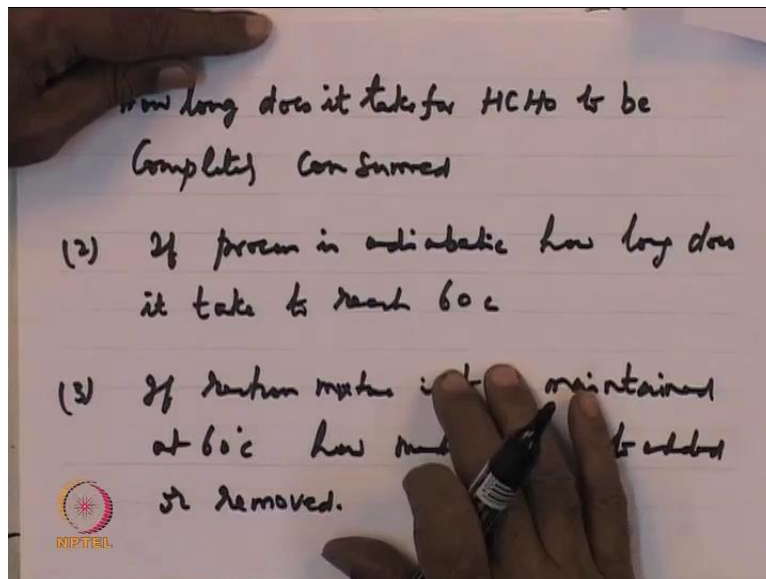 How long does it take for HCHO to be
Completely Consumed
(2) If process is adiabatic how long does
it take to reach 60 c
(3) If reaction mixture is to maintained
at 60°c how to added
or removed.
NPTEL